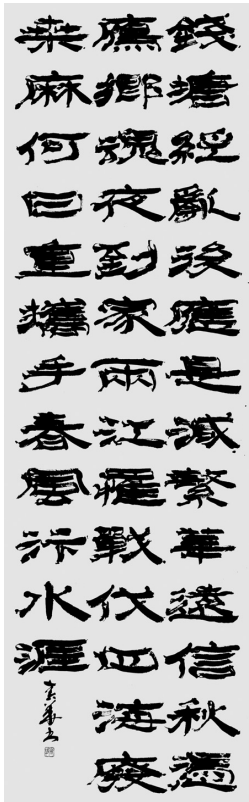 錢塘經亂後應是減繁華遠信秋憑
鴈鄉魂夜到家兩江罹戰伐四海廢
桑麻何日重攜手春水涯